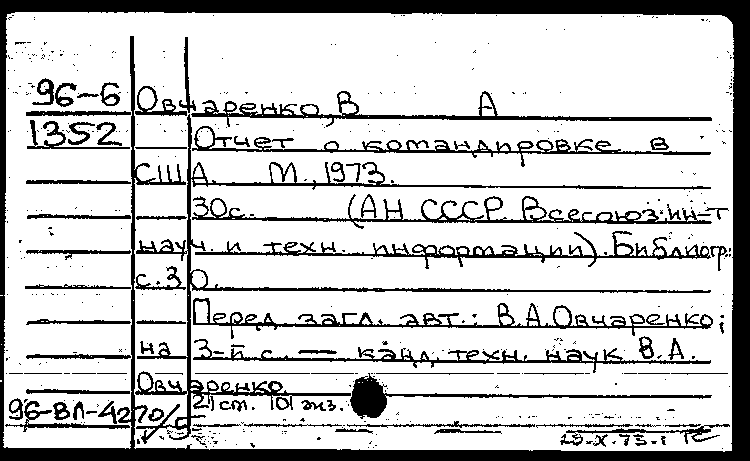 96-6 Овчаренко, В А
1352 Отчет о командировке в
США. М., 1973.
30с. (АН СССР. Всесоюз. ин-т
науч. и техн. информации). Библиогр.:
с. 30.
Перед загл. авт.: В.А.Овчаренко;
на 3-й с. — канд. техн. наук В.А.
Овчаренко.
96-ВЛ-4270/5 21 ст. 101 экз.